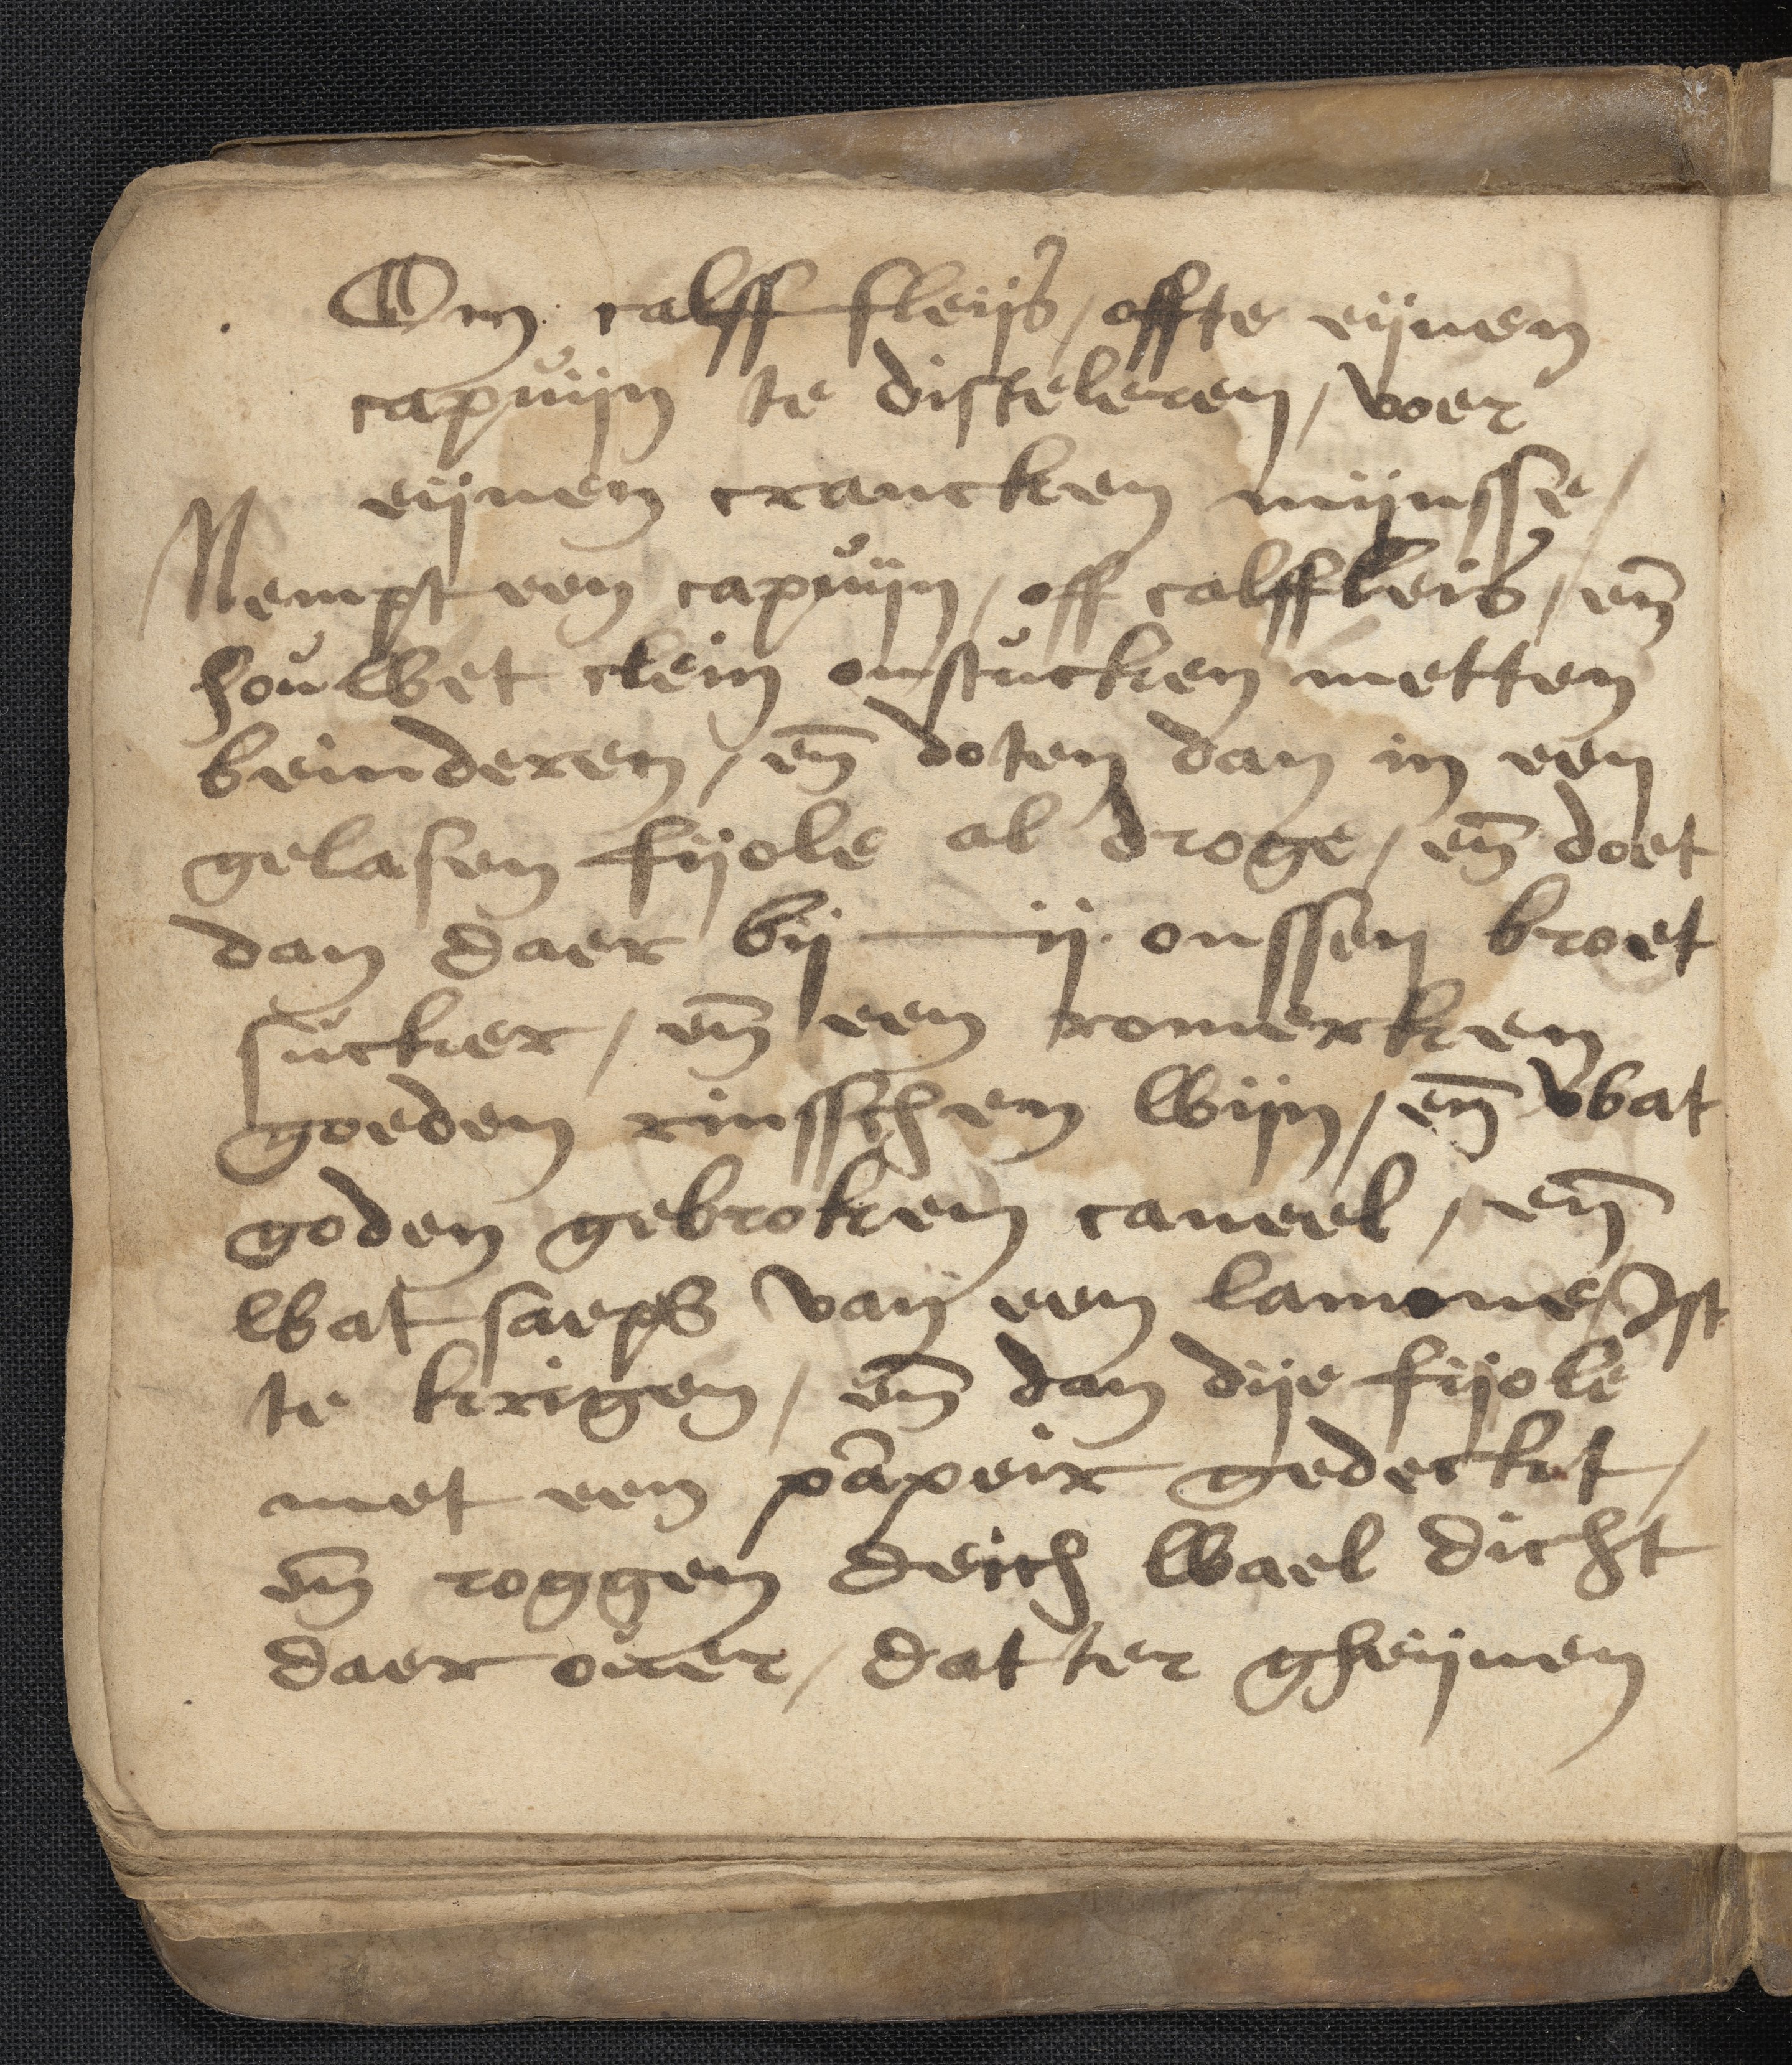 Om calff fleijs / offte eijnen
capuijn te disteleren / voer
eijnen crancken mijnsse /
Nempt een capuijn / off calffleis / en̄
houwet clein onstucken metten
beinderen / en̄ doten dan in een
gelasen fijole al droge / en̄ doet
dan daer bij — ij onssen broet
sucker / en̄ een romerken
goeden rinsschen wijn / en̄ wat
goden gebroken caneel / en̄
wat saeps van een lamone / Ist
te krigen / en̄ dan dije fijole
met een papeir gedeckt /
en̄ roggen deich wael dicht
daer ouer / dat ter gheijnen